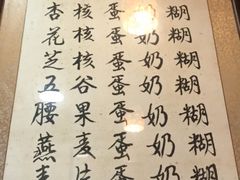 杏核蛋奶糊
花核蛋奶糊
芝核蛋奶糊
五谷蛋奶糊
腰果蛋奶糊
燕麦蛋奶糊
片蛋奶糊